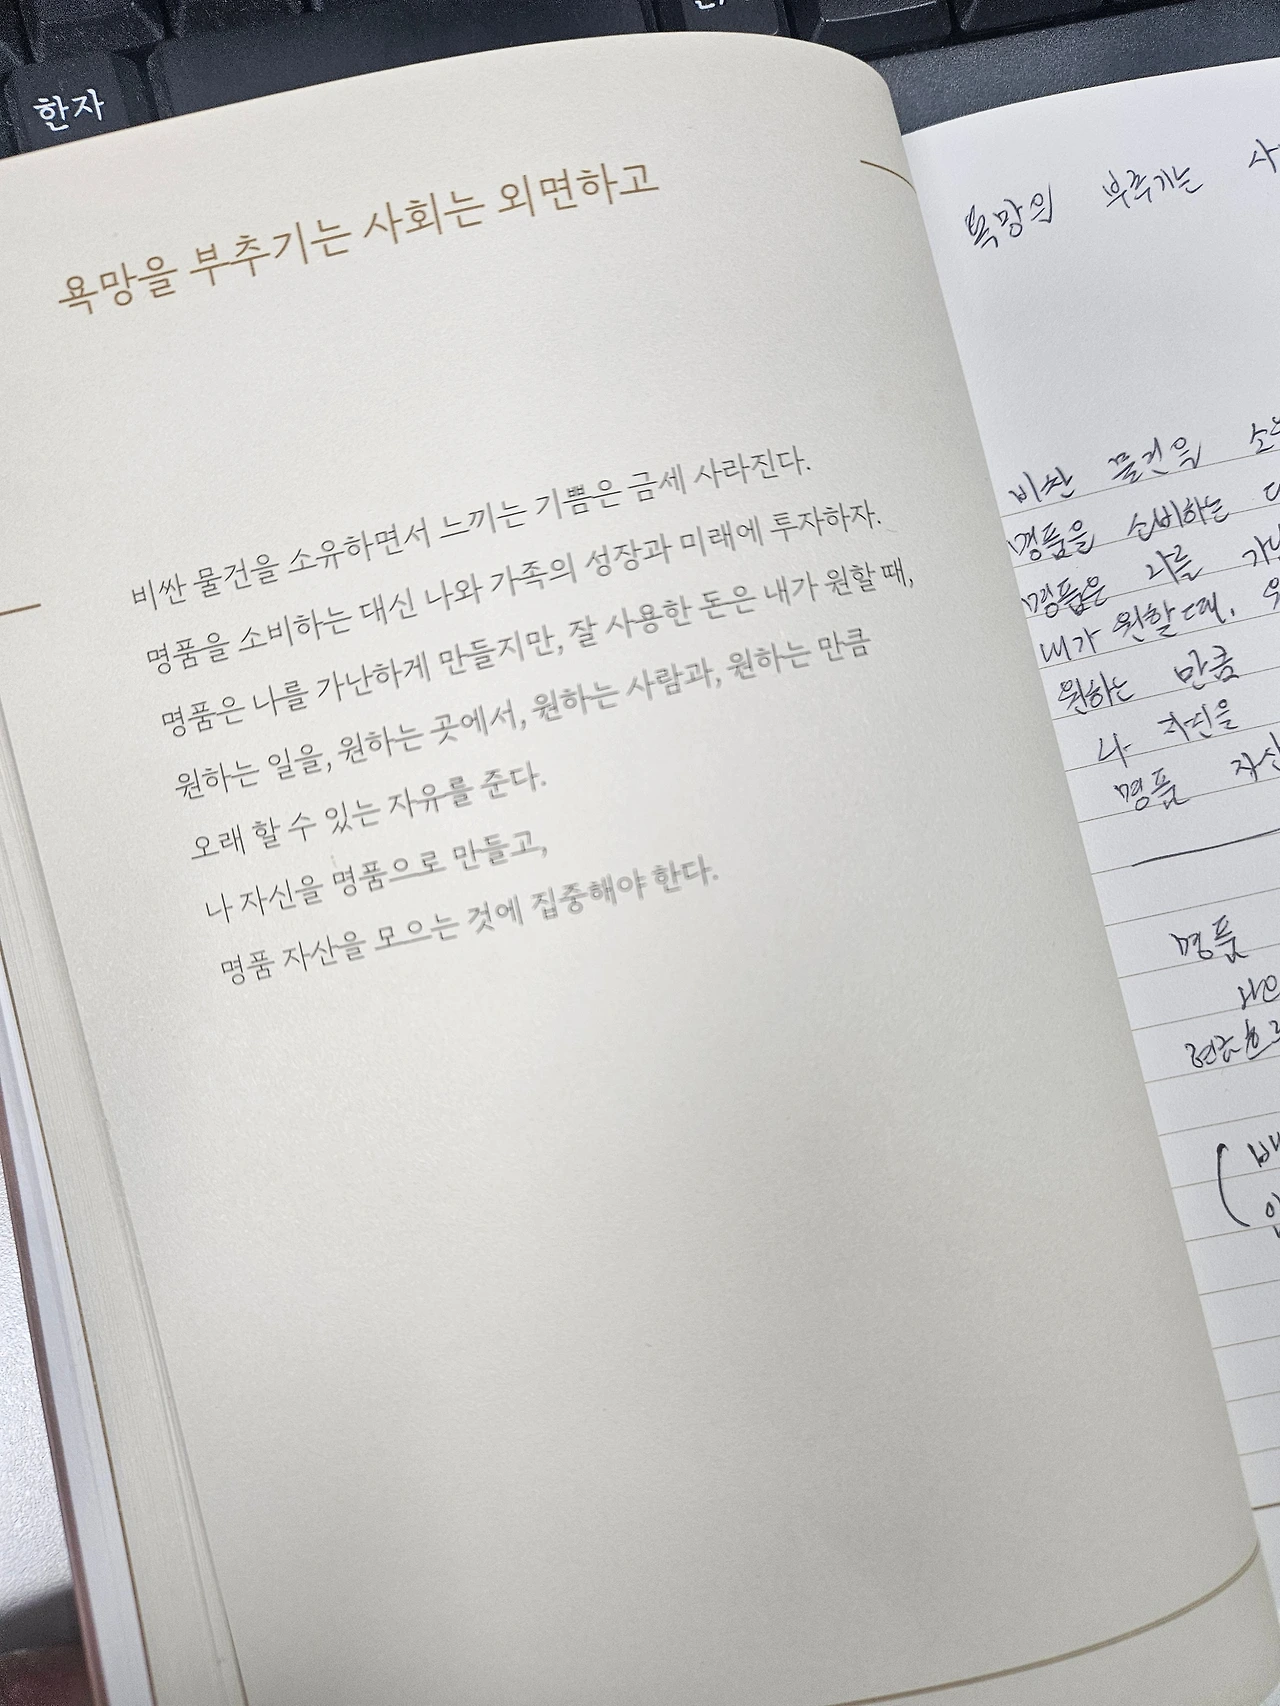 한자
욕망을 부추기는 사회는 외면하고
비싼 물건을 소유하면서 느끼는 기쁨은 금세 사라진다.
명품을 소비하는 대신 나와 가족의 성장과 미래에 투자하자.
명품은 나를 가난하게 만들지만, 잘 사용한 돈은 내가 원할 때,
원하는 일을, 원하는 곳에서, 원하는 사람과, 원하는 만큼
오래 할 수 있는 자유를 준다.
나 자신을 명품으로 만들고,
명품 자산을 모으는 것에 집중해야 한다.
욕망의 부추기는 사
비싼 물건을
명품을 소비하는
명품은 나를
내가 원할 때,
원하는 만큼
나 자신을
명품 자산
명품